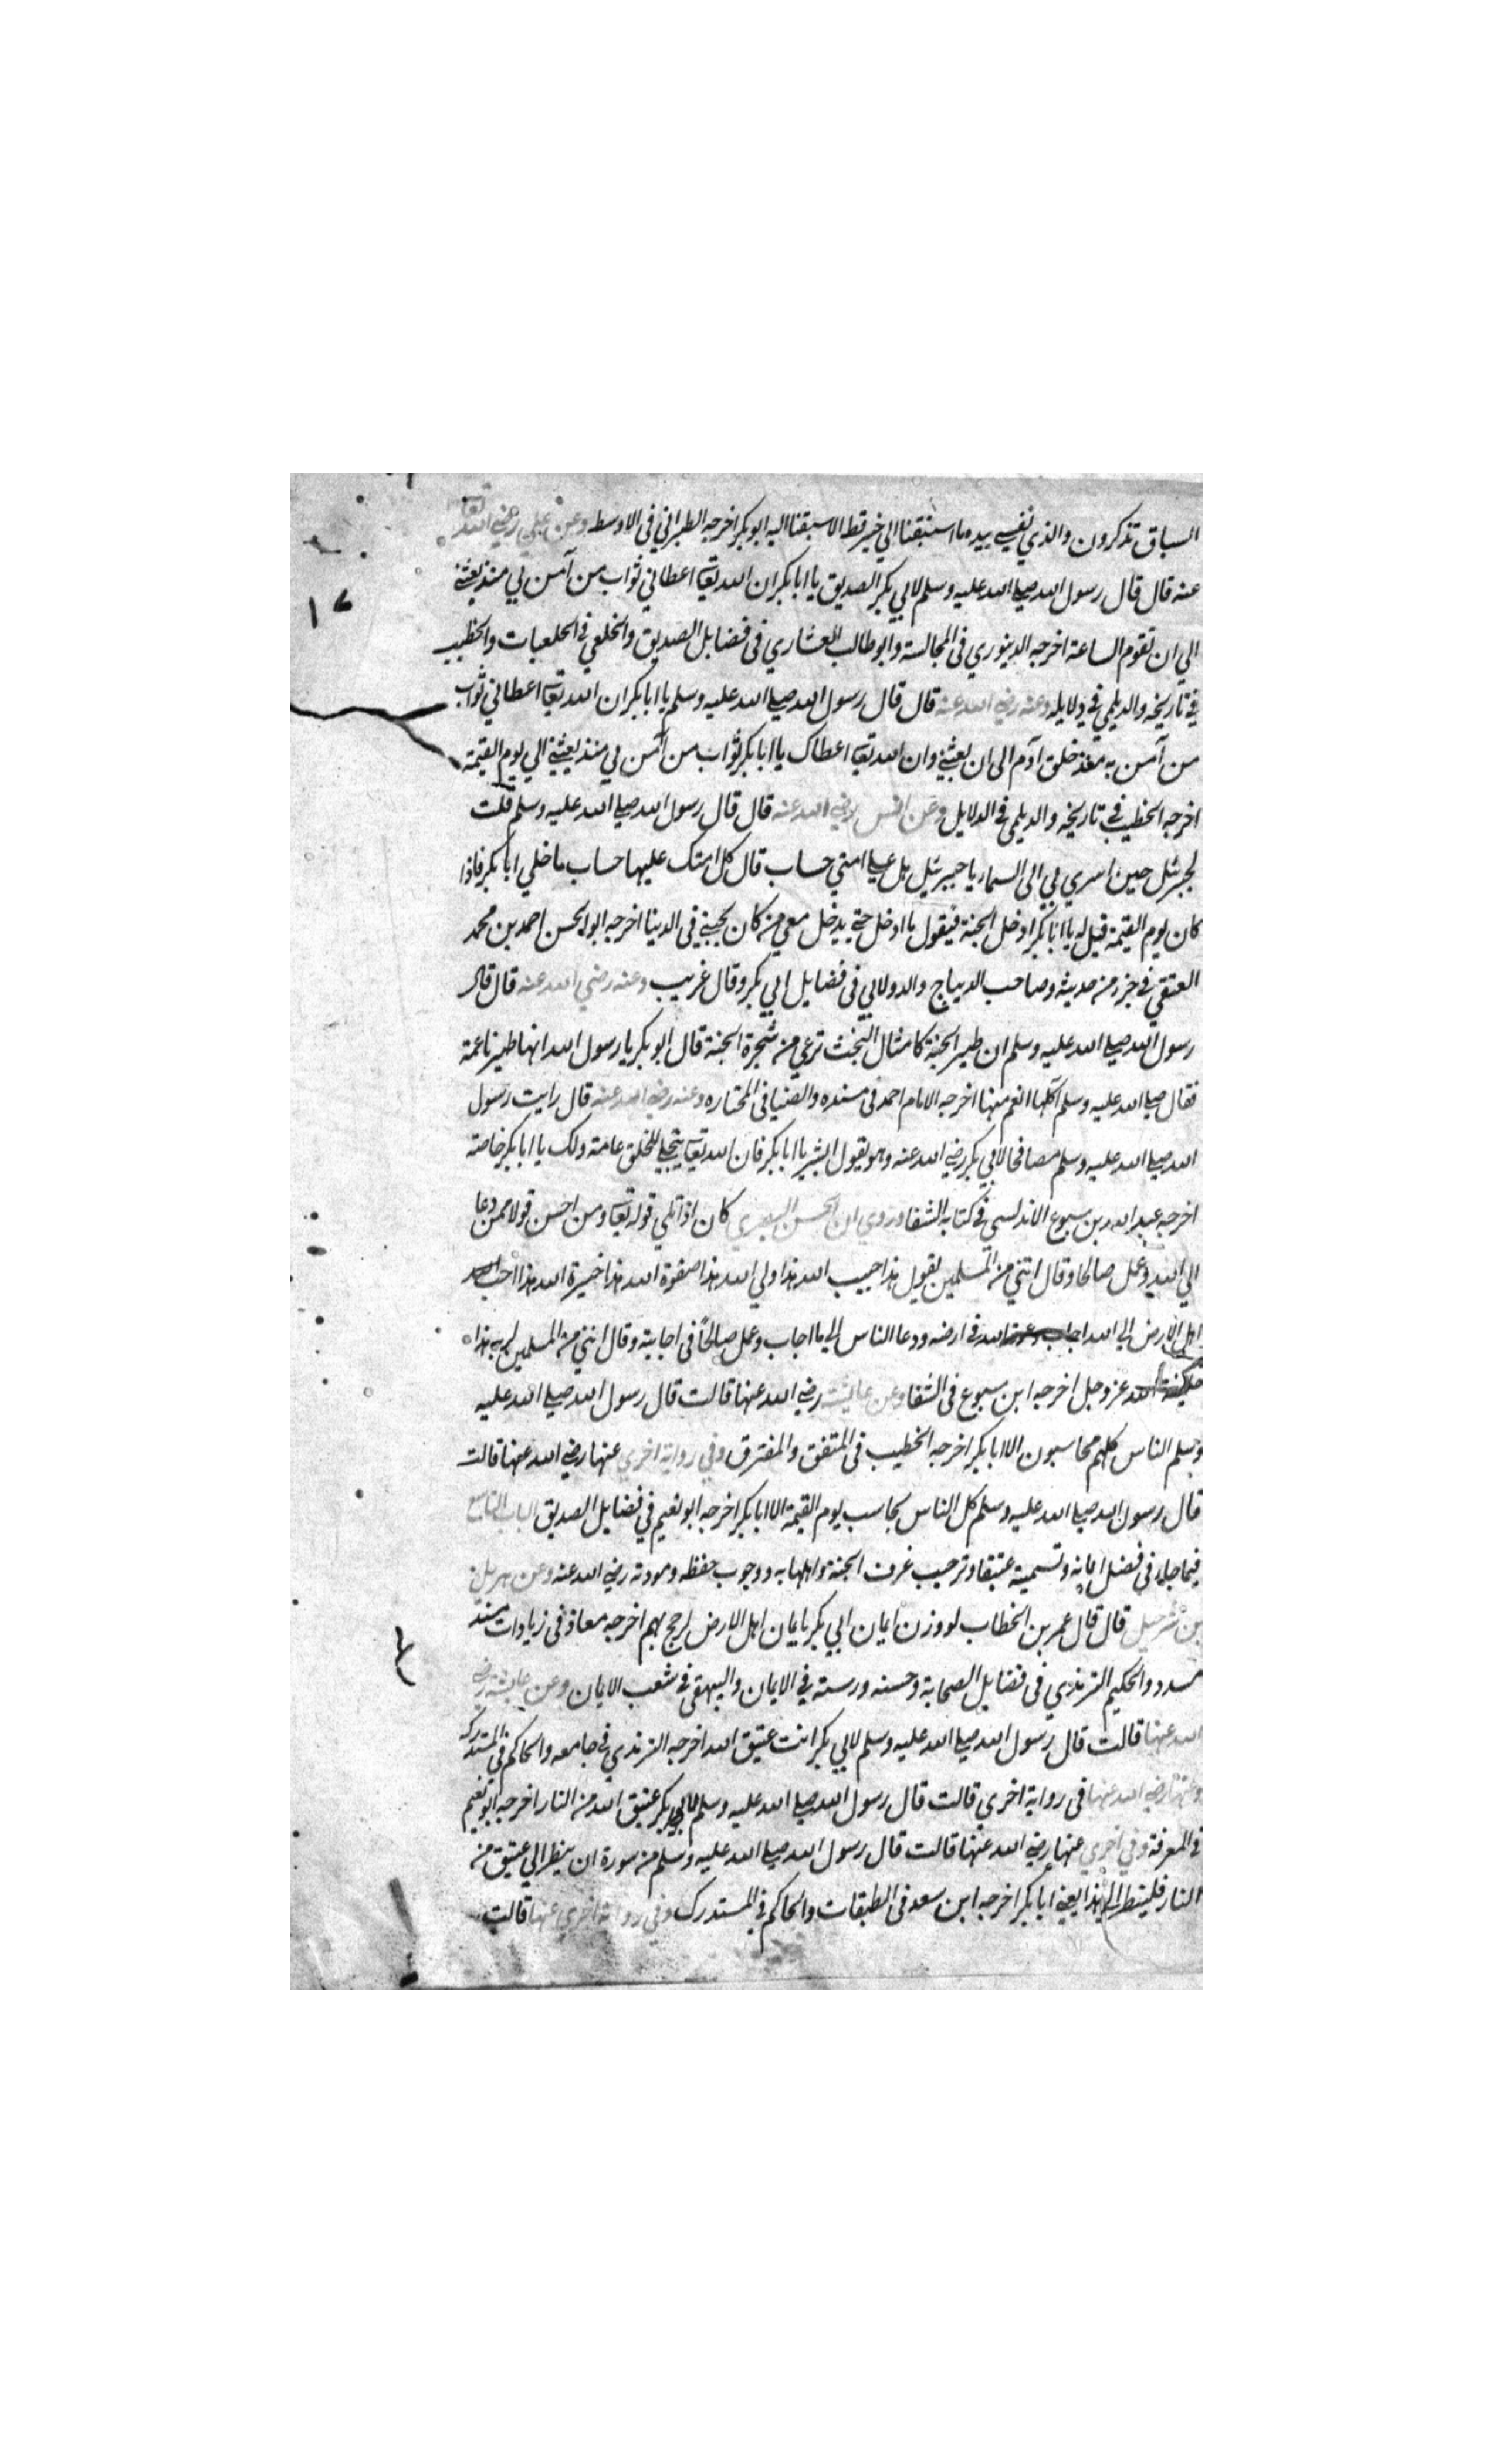 السباق تذكرون والذي نفسي بيده ما استبقنا الي خير قط الا سبقنا اليه ابو بكر اخرجه الطبراني في الاوسط وعن علي رضي الله تعا
عنه قال قال رسول الله صلي الله عليه وسلم لابي بكر الصديق يا ابا بكر ان الله تعا اعطاني ثواب من آمن بي منذ بعثني
الي ان تقوم الساعة اخرجه الدينوري في المجالسة وابو طالب العشاري في فضايل الصديق والخلعي في الخلعيات والخطيب
في تاريخه والديلمي في دلايله وعنه رضي الله عنه قال قال رسول الله صلي الله عليه وسلم يا ابا بكر ان الله تعا اعطاني ثواب
من آمن به منذ خلق آدم الى ان بعثني وان الله تعا اعطاك يا ابا بكر ثواب من آمن بي منذ بعثني الي يوم القيمة
اخرجه الخطيب في تاريخه والديلمي في الدلايل وعن انس رضي الله عنه قال قال رسول الله صلي الله عليه وسلم قلت
لجبرئيل حين اسري بي الى السماء يا جبرئيل هل علي امتي حساب قال كل امتك عليها حساب ما خلي ابا بكر فاذا
كان يوم القيمة قيل له يا ابا بكر ادخل الجنة فيقول ما ادخل حتي يدخل معي من كان يحبني في الدنيا اخرجه ابو الحسن احمد بن محمد
العتقي في جزء من حديثه وصاحب الديباج والدولابي في فضايل ابي بكر وقال غريب وعنه رضي الله عنه قال قال
رسول الله صلي الله عليه وسلم ان طير الجنة كامثال البخت ترعي من شجرة الجنة قال ابو بكر يا رسول الله انها طير ناعمة
فقال صلي الله عليه وسلم آكلها انعم منها اخرجه الامام احمد في مسنده والضيا في المختاره وعنه رضي الله عنه قال رايت رسول
الله صلي الله عليه وسلم مصافحا لابي بكر رضي الله عنه وهو يقول ابشر يا ابا بكر فان الله تعا يتجلي للخلق عامة ولك يا ابا بكر خاصة
اخرجه عبد الله بن سبوع الاندلسي في كتابه الشفا وروي ان الحسن البصري كان اذا تلي قوله تعا ومن احسن قولا ممن دعا
الي الله وعمل صالحا وقال انني من المسلمين يقول هذا حبيب الله هذا ولي الله هذا صفوة الله هذا خيرة الله هذا احب
اهل الارض الي الله اجاب الله في ارضه ودعا الناس الي ما اجاب وعمل صالحاً في اجابته وقال انني من المسلمين لربه هذا
خليفة الله عز وجل اخرجه ابن سبوع في الشفا وعن عايشة رضي الله عنها قالت قال رسول الله صلي الله عليه
وسلم الناس كلهم محاسبون الا ابا بكر اخرجه الخطيب في المتفق والمفترق وفي رواية اخري عنها رضي الله عنها قالت
قال رسول الله صلي الله عليه وسلم كل الناس يحاسب يوم القيمة الا ابا بكر اخرجه ابو نعيم في فضايل الصديق الباب التاسع
فيما جاء في فضل ايمانه وتسميته عتيقا وترحيب غرف الجنة واهلها به ووجوب حفظه ومودته رضي الله عنه وعن هزيل
بن شرحبيل قال قال عمر بن الخطاب لو وزن ايمان ابي بكر بايمان اهل الارض لرجح بهم اخرجه معاذ في زيادات مسند
مسدد والحكيم الترمذي في فضايل الصحابة وحسنه ورسته في الايمان والبيهقي في شعب الايمان وعن عايشة رضي
الله عنها قالت قال رسول الله صلي الله عليه وسلم لابي بكر انت عتيق الله اخرجه الترمذي في جامعه والحاكم في المستدركه
وعنها رضي الله عنها في رواية اخري قالت قال رسول الله صلي الله عليه وسلم ابو بكر عتيق الله من النار اخرجه ابو نعيم
في المعرفة وفي اخري عنها رضي الله عنها قالت قال رسول الله صلي الله عليه وسلم من سوره ان ينظر الي عتيق من
النار فلينظر الي هذا يعني ابا بكر اخرجه ابن سعد في الطبقات والحاكم في المستدرك وفي رواية اخري عنها قالت